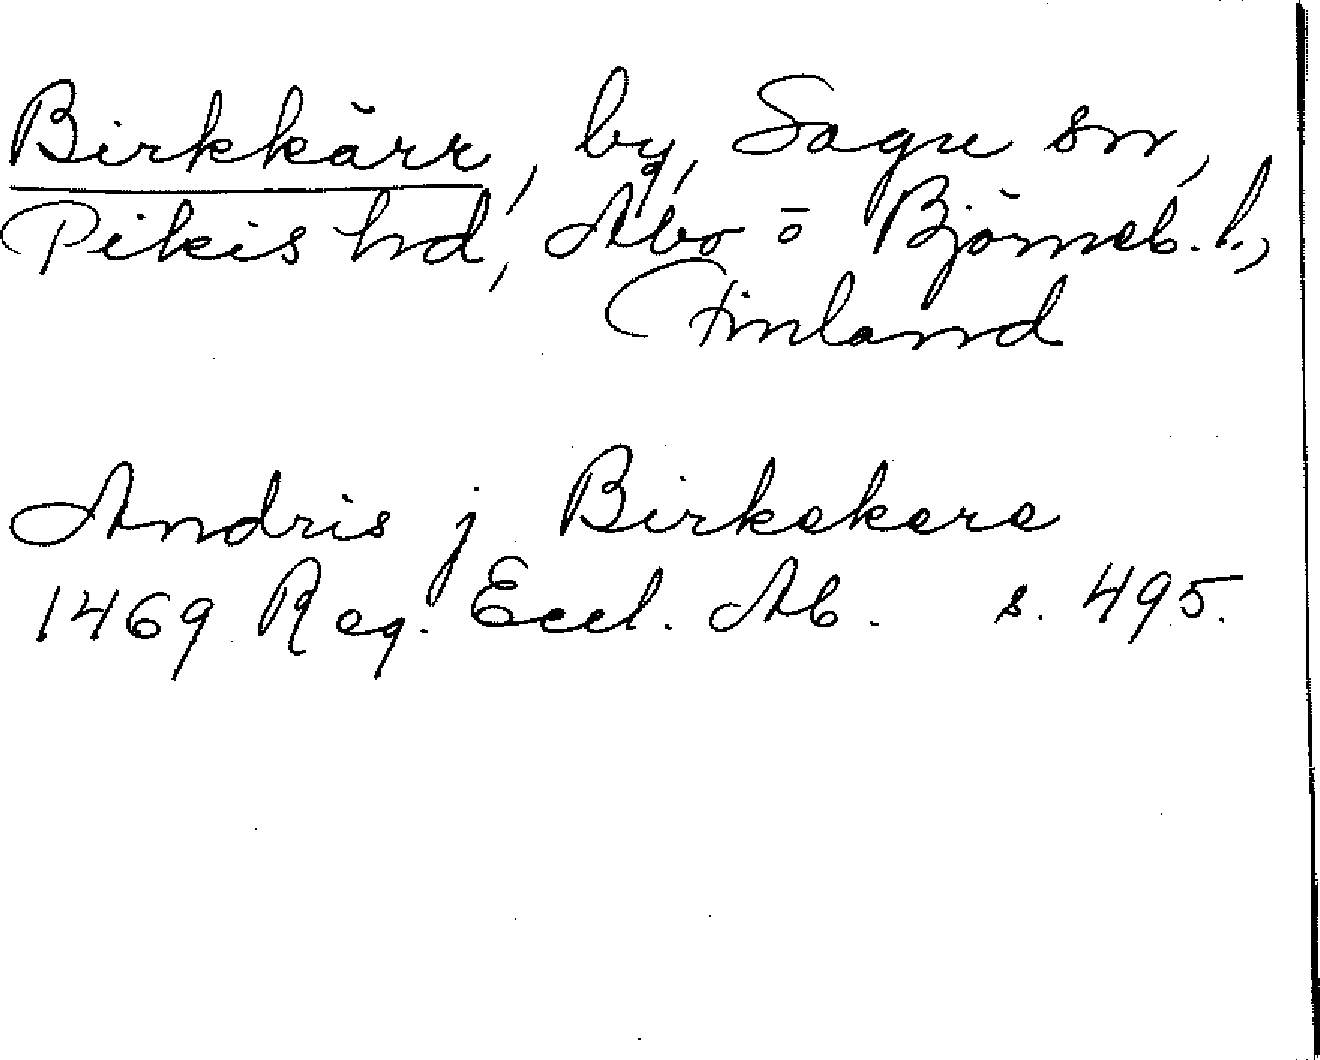 Birkkärr, by, Sagu sn,
Pikis hd, Åbo o Björneb. l.,
Finland
Andris j Birkakara
1469 Reg. Eccl. Ab. s. 495.